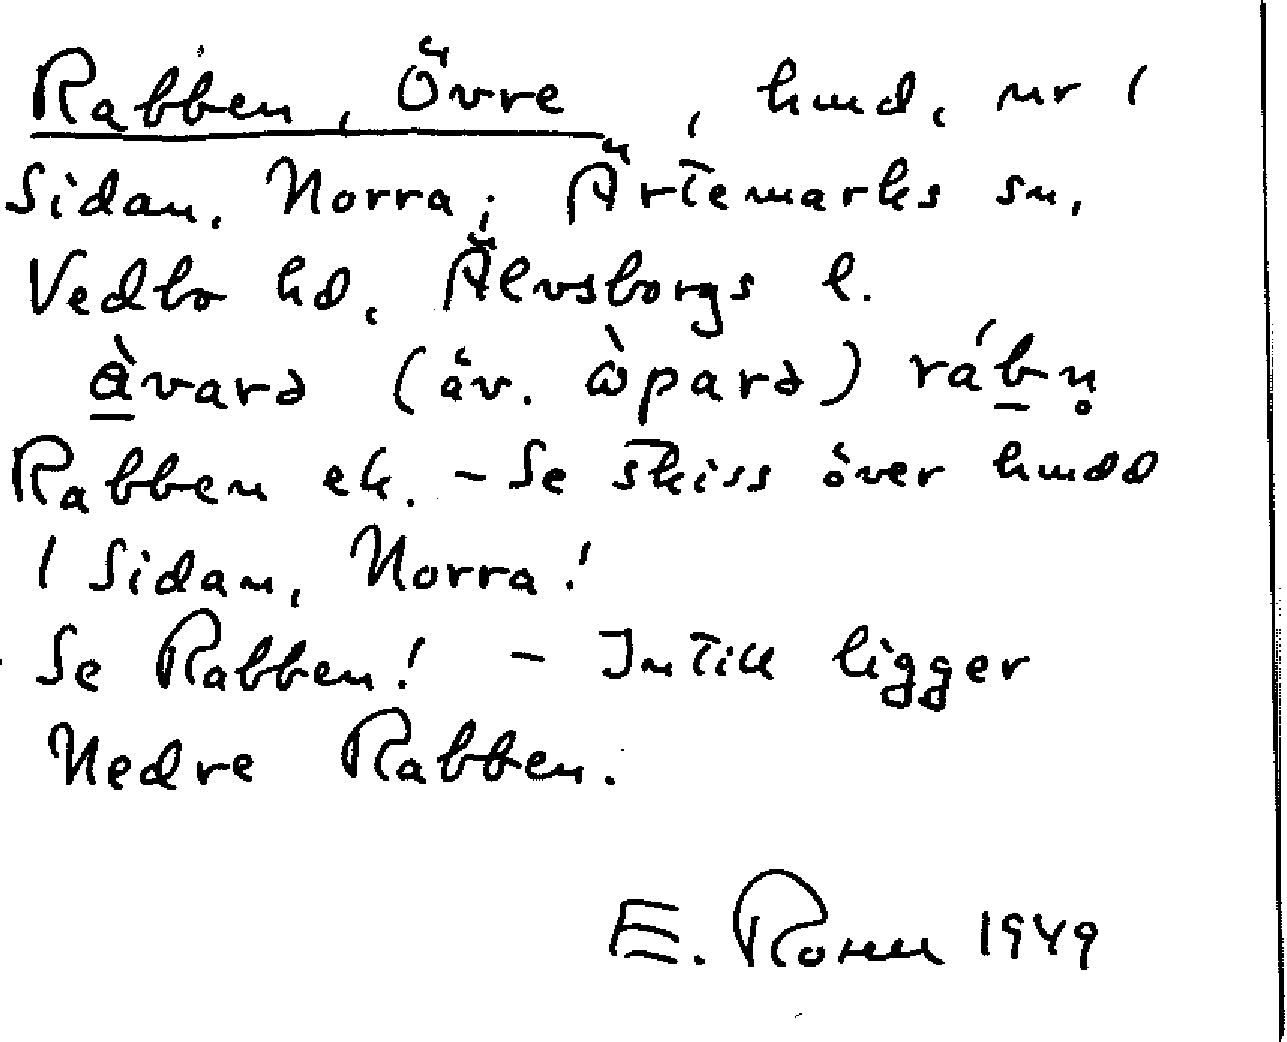 Rabben, Övre, hmd, nr 1
Sidan, Norra; Ärtemarks sn,
Vedbo hd, Älvsborgs l.
àvarə (äv. òparə) rábn̥
Rabben ek. - Se skiss över hmdd
1 Sidan, Norra!
Se Rabben! - Intill ligger
Nedre Rabben.
E. Rosell 1949